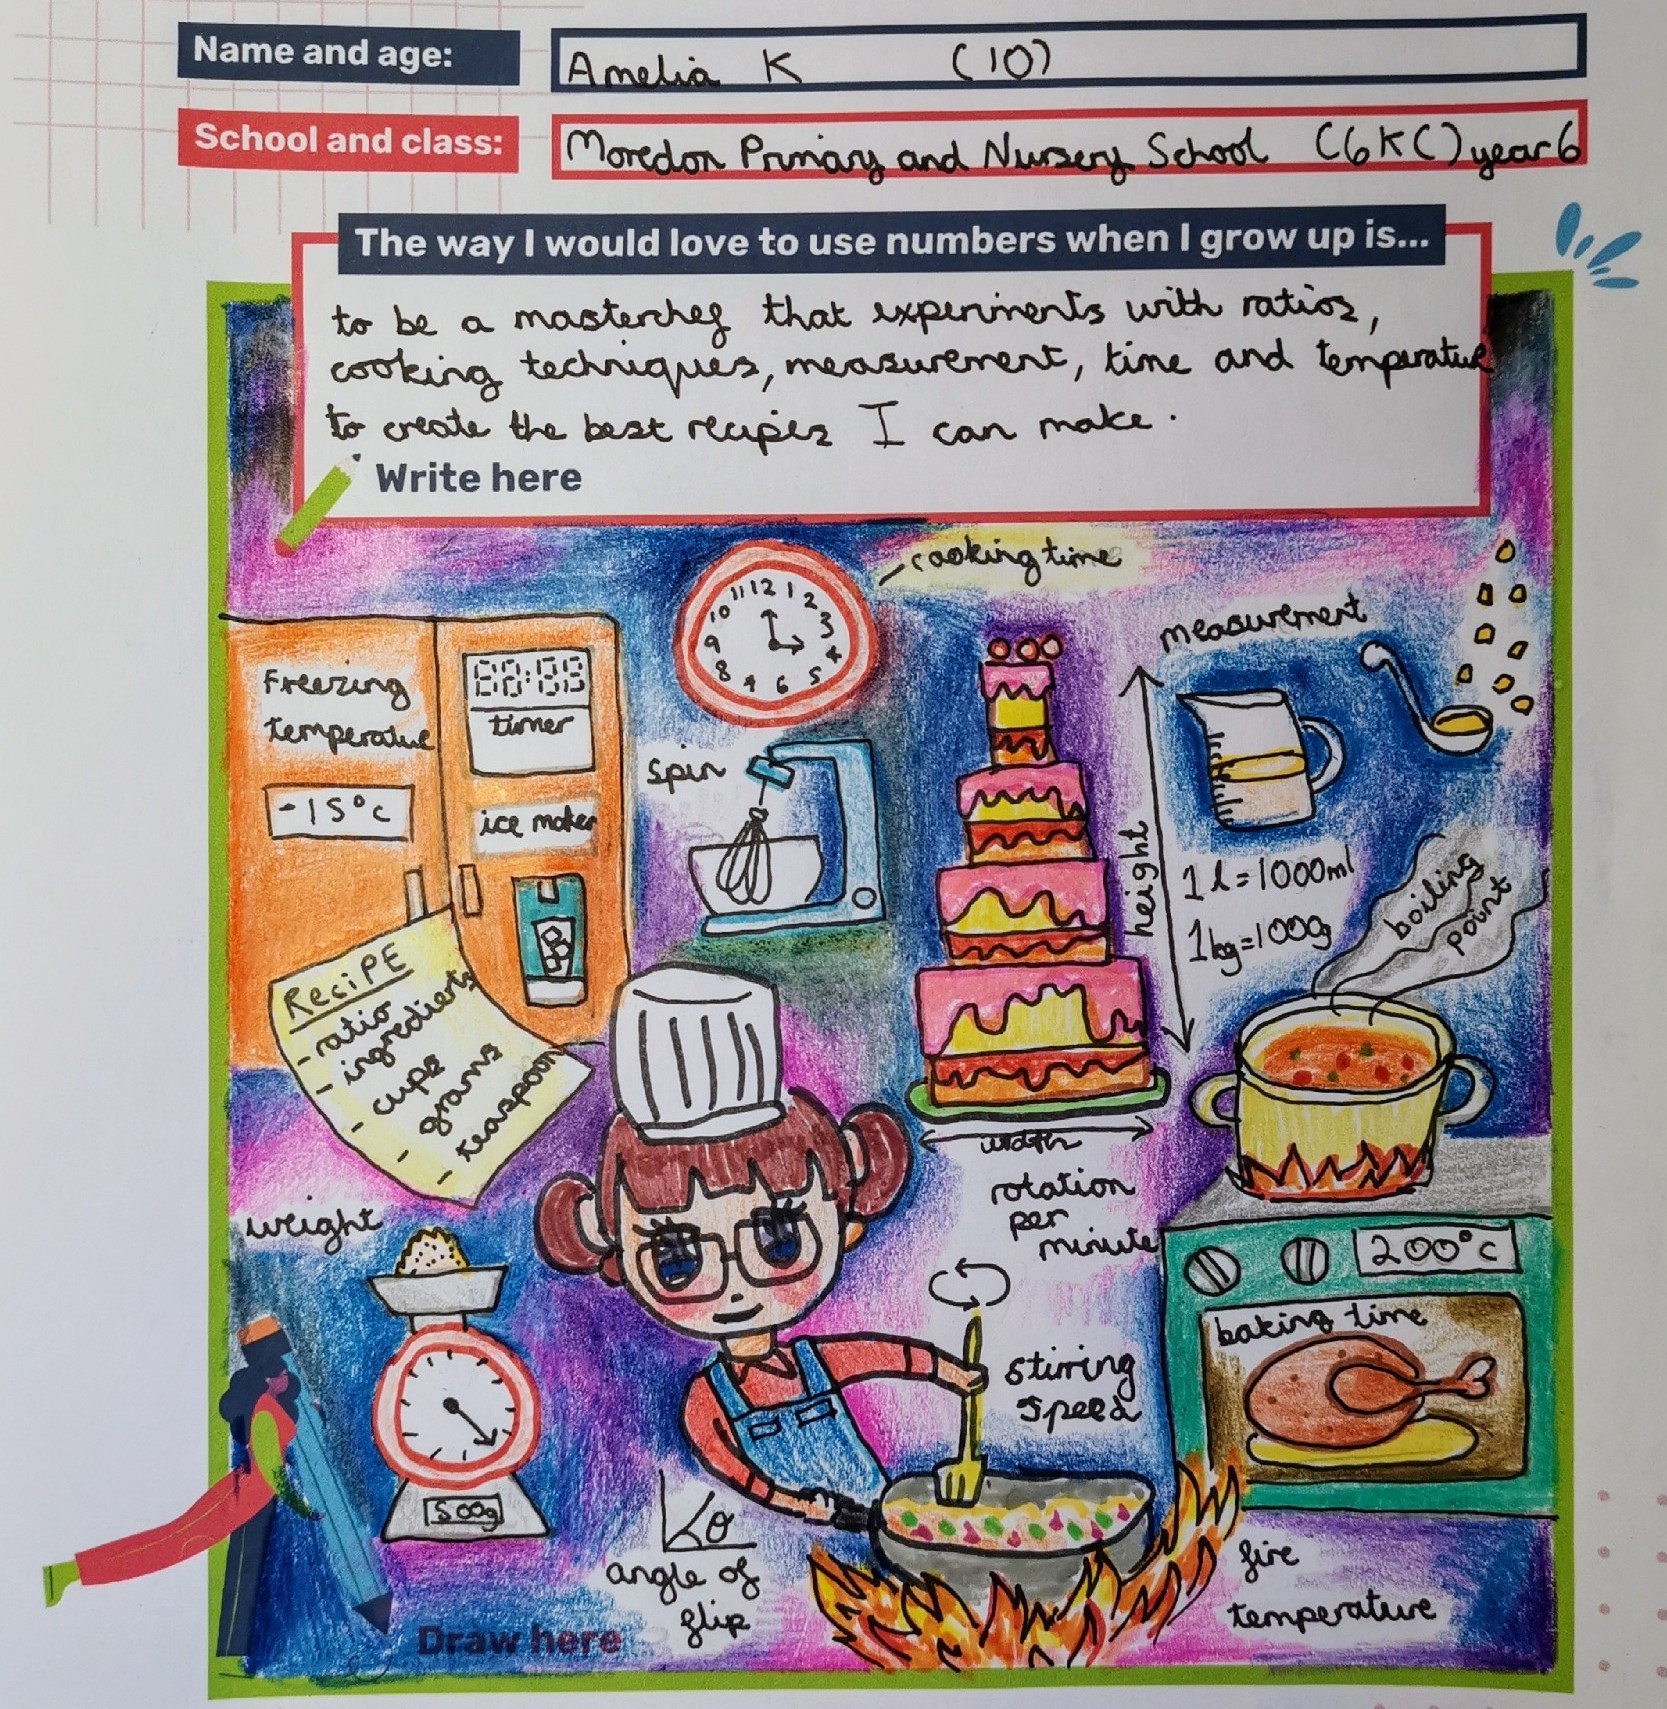 Name and age:
Amelia K (10)
School and class:
Moredon Primary and Nursery School (6KC) year 6
The way I would love to use numbers when I grow up is...
to be a masterchef that experiments with ratios,
cooking techniques, measurement, time and temperature
to create the best recipes I can make.
Write here
cooking time
12 1 2 3 4 5 6 7 8 9 10 11
measurement
Freezing
temperature
-15°c
88:88
timer
ice maker
spin
height
1l=1000ml
1kg=100g
boiling
point
ReciPE
- ratio
- ingredients
- cups
- grams
- teaspoon
width
rotation
per
minute
weight
500g
200°c
baking time
stirring
speed
angle of
flip
fire
temperature
Draw here